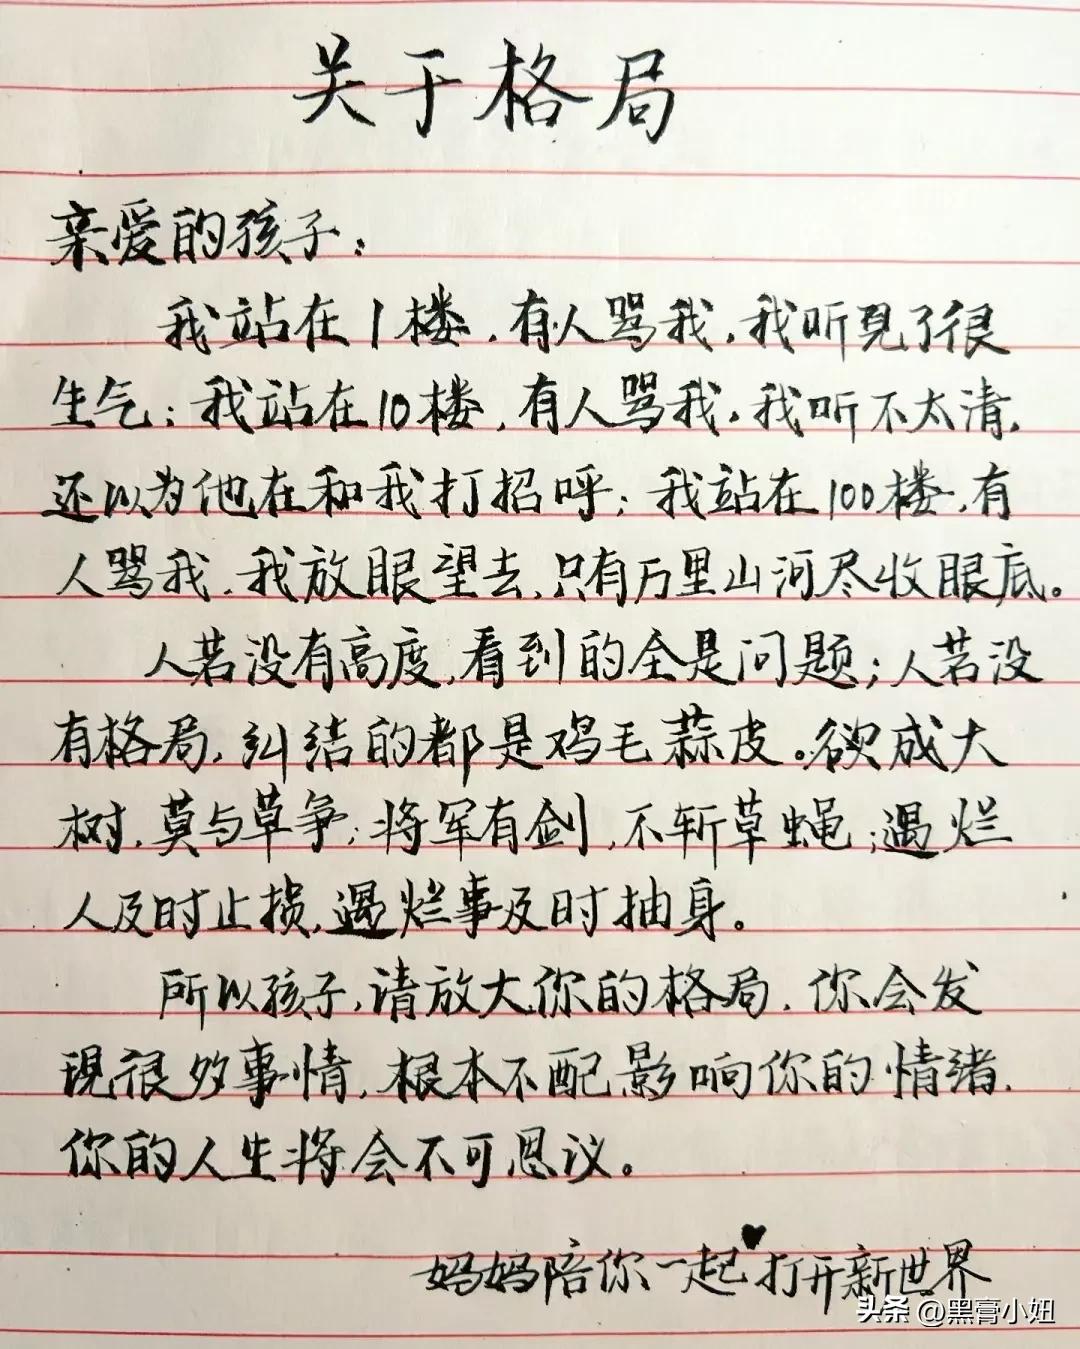 关于格局
亲爱的孩子：
我站在1楼，有人骂我，我听见了很
生气；我站在10楼，有人骂我，我听不太清，
还以为他在和我打招呼；我站在100楼，有
人骂我，我放眼望去，只有万里山河尽收眼底。
人若没有高度，看到的全是问题；人若没
有格局，纠结的都是鸡毛蒜皮。欲成大
树，莫与草争；将军有剑，不斩草蝇；遇烂
人及时止损，遇烂事及时抽身。
所以孩子，请放大你的格局，你会发
现很多事情，根本不配影响你的情绪，
你的人生将会不可思议。
妈妈陪你一起♥打开新世界
头条 @黑膏小妞